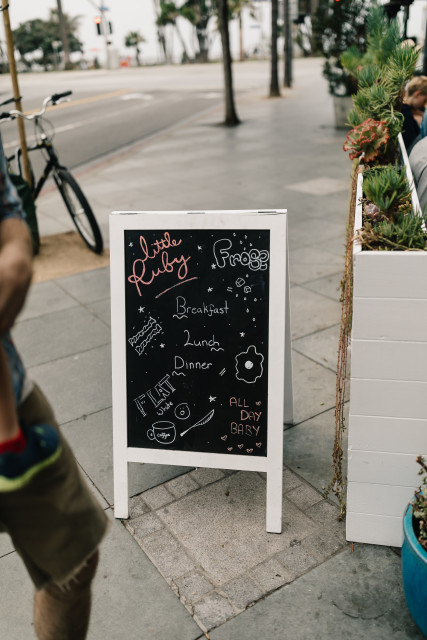 little
Ruby
Frosé
Breakfast
Lunch
Dinner
FLAT
White
coffee
ALL
DAY
BABY